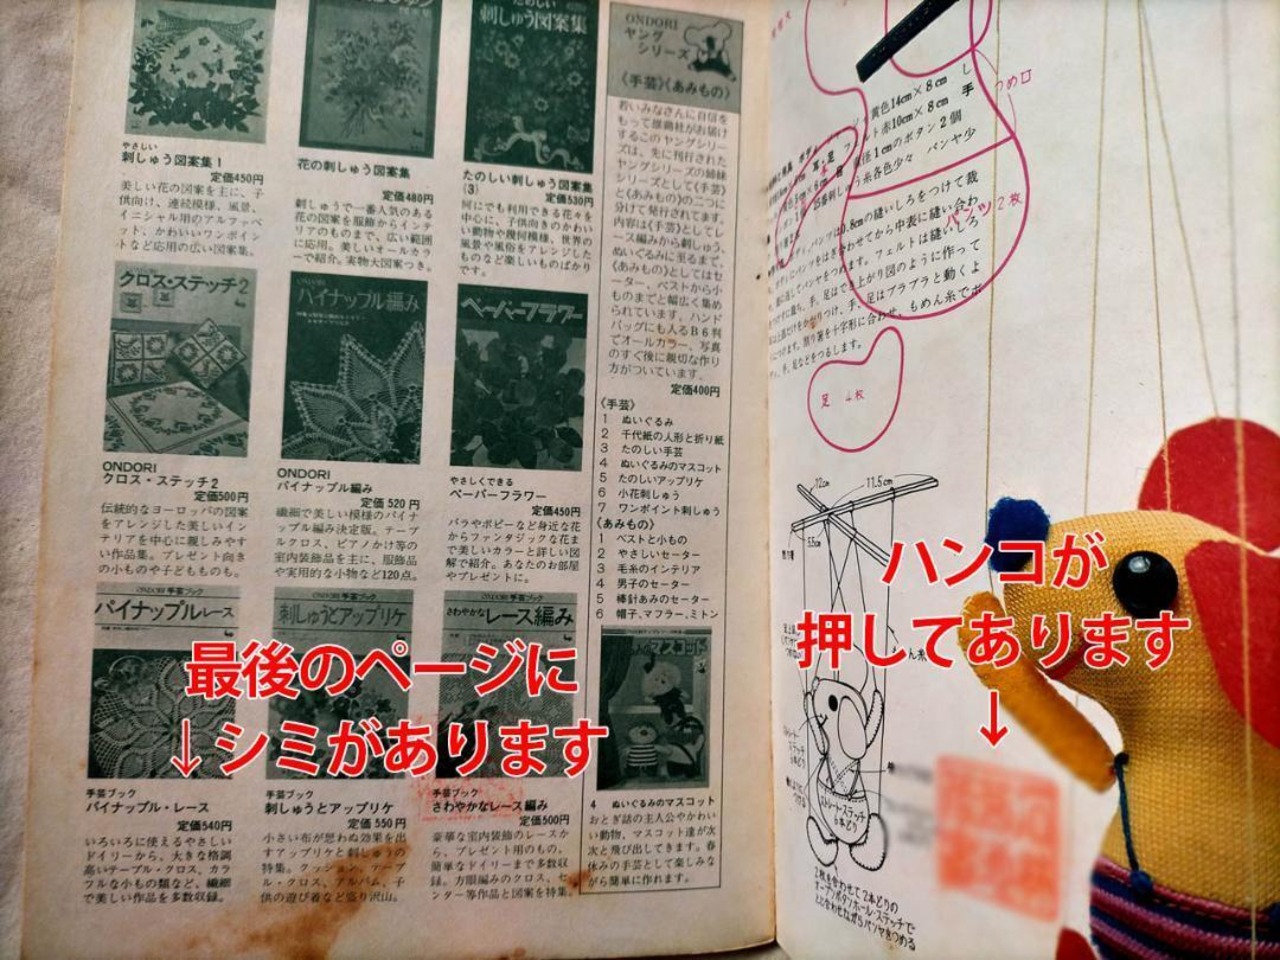 たのしい
刺しゅう図案集
やさしい
刺しゅう図案集1
定価450円
美しい花の図案を主に、子
供向け、連続模様、風景、
イニシャル用のアルファベ
ット、かわいいワンポイン
トなど応用の広い図案集。
花の刺しゅう図案集
定価480円
刺しゅうで一番人気のある
花の図案を服飾からインテ
リアのものまで、広い範囲
に応用。美しいオールカラ
ーで紹介。実物大図案つき。
たのしい刺しゅう図案集
(3)
定価530円
何にでも利用できる花々を
中心に、子供向きのかわい
い動物や幾何模様、世界の
風景や風俗をアレンジした
ものなど楽しいものばかり
です。
クロス・ステッチ2
ONDORI
クロス・ステッチ2
定価500円
伝統的なヨーロッパの図案
をアレンジした美しいイン
テリアを中心に親しみやす
い作品集。プレゼント向き
の小ものや子どもものも。
パイナップル編み
ONDORI
パイナップル編み
定価520円
繊細で美しい模様のパイナ
ップル編み決定版。テーブ
ルクロス、ピアノかけ等の
室内装飾品を主に、服飾品
や実用的な小物など120点。
ペーパーフラワー
やさしくできる
ペーパーフラワー
定価450円
バラやポピーなど身近な花
からファンタジックな花ま
で美しいカラーと詳しい図
解で紹介。あなたのお部屋
やプレゼントに。
ONDORI 手芸ブック
パイナップルレース
手芸ブック
パイナップル・レース
定価540円
いろいろに使えるやさしい
ドイリーから、大きな格調
高いテーブル・クロス、カラ
フルな小もの類など、繊細
で美しい作品を多数収録。
ONDORI 手芸ブック
刺しゅうとアップリケ
手芸ブック
刺しゅうとアップリケ
定価550円
小さい布が思わぬ効果を出
すアップリケと刺しゅうの
特集。クッション、テーブ
ル・クロス、アルバム、子
供の遊び着など盛り沢山。
ONDORI 手芸ブック
さわやかなレース編み
手芸ブック
さわやかなレース編み
定価500円
豪華な室内装飾のレースか
ら、プレゼント用のもの、
簡単なドイリーまで多数収
録。方眼編みのクロス、セ
ンター等作品と図案を特集。
ONDORI
ヤング
シリーズ
《手芸》《あみもの》
若いみなさんに自信を
もって雄鶏社がお届け
するこのヤングシリー
ズは、先に刊行された
ヤングシリーズの姉妹
シリーズとして《手芸》
と《あみもの》の二つに
分けて発行されてます。
内容は《手芸》としてレ
ース編みから刺しゅう、
ぬいぐるみに至るまで、
《あみもの》としてはセ
ーター、ベストから小
ものまでと幅広く集め
られています。ハンド
バッグにも入るB6判
でオールカラー。写真
のすぐ後に親切な作り
方がついています。
定価400円
《手芸》
1 ぬいぐるみ
2 千代紙の人形と折り紙
3 たのしい手芸
4 ぬいぐるみのマスコット
5 たのしいアップリケ
6 小花刺しゅう
7 ワンポイント刺しゅう
《あみもの》
1 ベストと小もの
2 やさしいセーター
3 毛糸のインテリア
4 男子のセーター
5 棒針あみのセーター
6 帽子、マフラー、ミトン
4 ぬいぐるみのマスコット
おとぎ話の主人公やかわい
い動物、マスコット達が次
次と飛び出してきます。春
休みの手芸として楽しみな
がら簡単に作れます。
最後のページに
↓シミがあります
つめ口
黄色14cm×8cm
ト赤10cm×8cm 手
直径1cmのボタン2個
糸各色少々 パンヤ少
パンツ2枚
0.8cmの縫いしろをつけて裁
わせてから中表に縫い合わ
をつめます。フェルトは縫いしろ
上がり図のように作って
手、足はブラブラと動くよ
割り箸を十字形に合わせ、もめん糸でボ
手、足などをつるします。
足 4枚
12cm
11.5cm
5.5cm
ハンコが
押してあります
↓
ストレートステッチ
6本どり
2枚を合わせて2本どりの
オープンボタンホール・ステッチで
とじ合わせながらパンヤをつめる